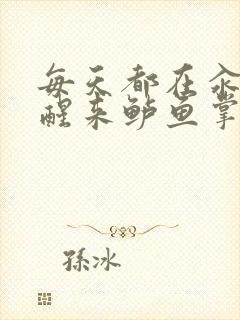 每天都在汆
醒来鲈鱼掌
孫冰